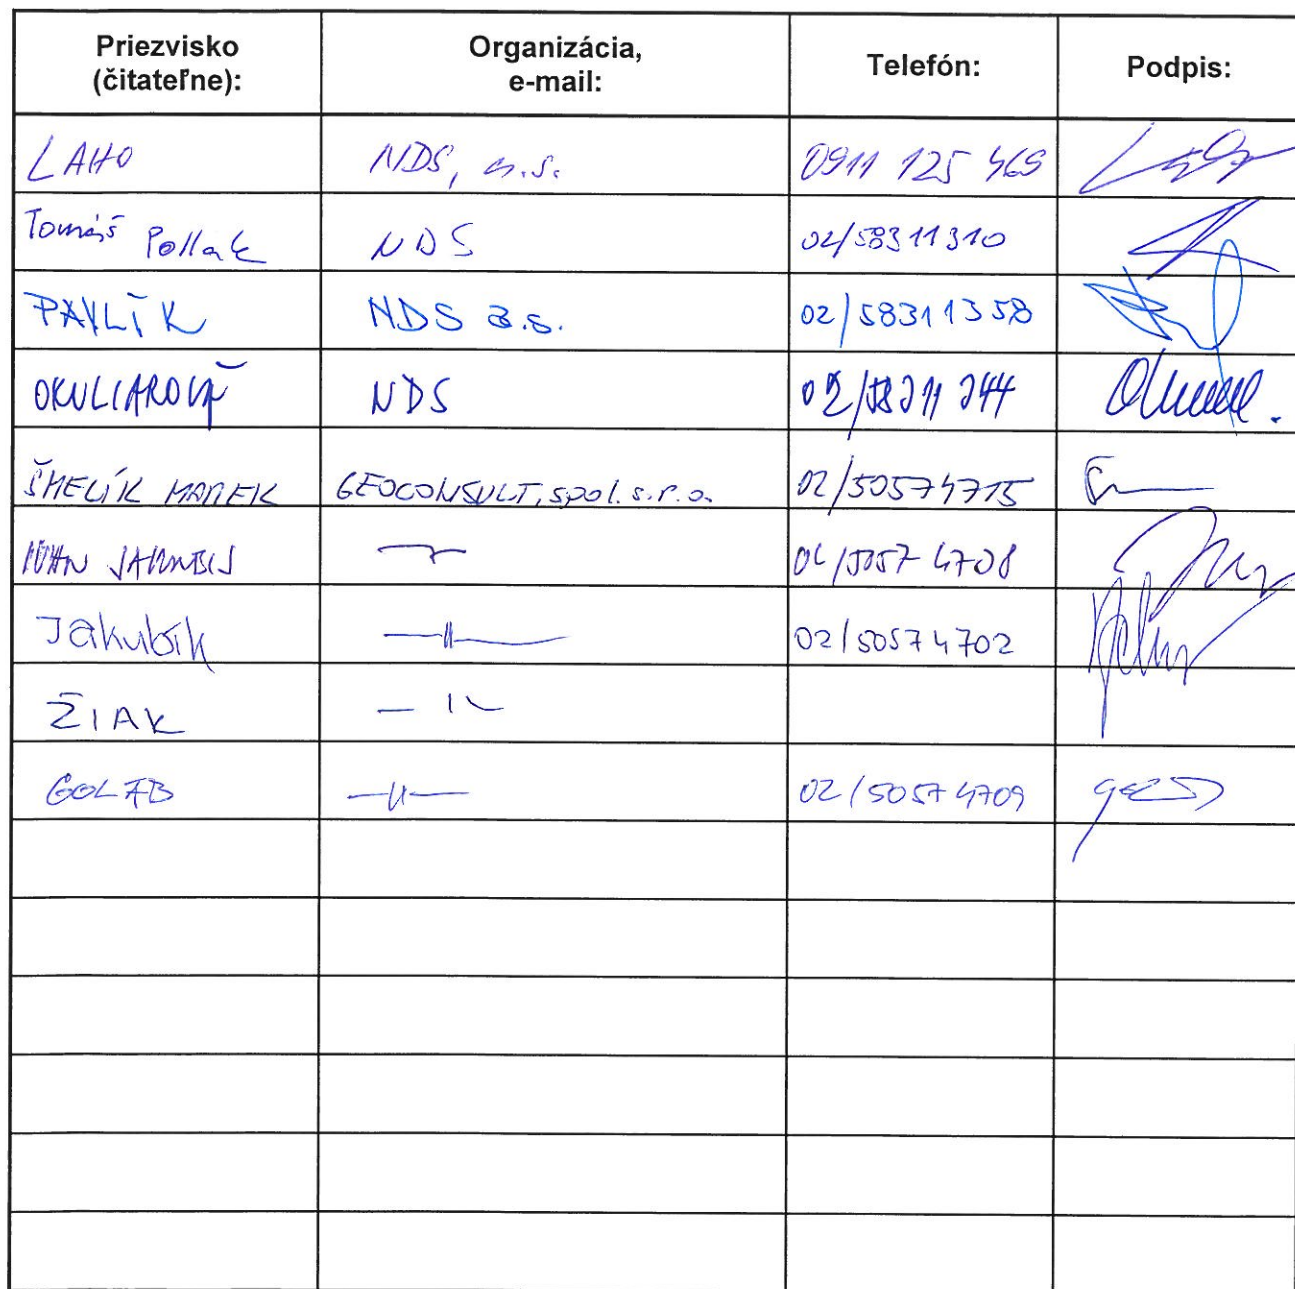 Priezvisko
(čitateľne):
Organizácia,
e-mail:
Telefón:
Podpis:
LAHO NDS, a.s. 0911 125 469
Tomáš Pollak NDS 02/58311310
PAVLÍK NDS a.s. 02/58311358
OKULIAROVÁ NDS 02/58311344
ŠMELÍK MAREK GEOCONSULT, spol. s.r.o. 02/50574715
IVAN 02/50574708
Jakubík —||— 02/50574702
ŽIAK — || —
GOLAB —||— 02/50574709